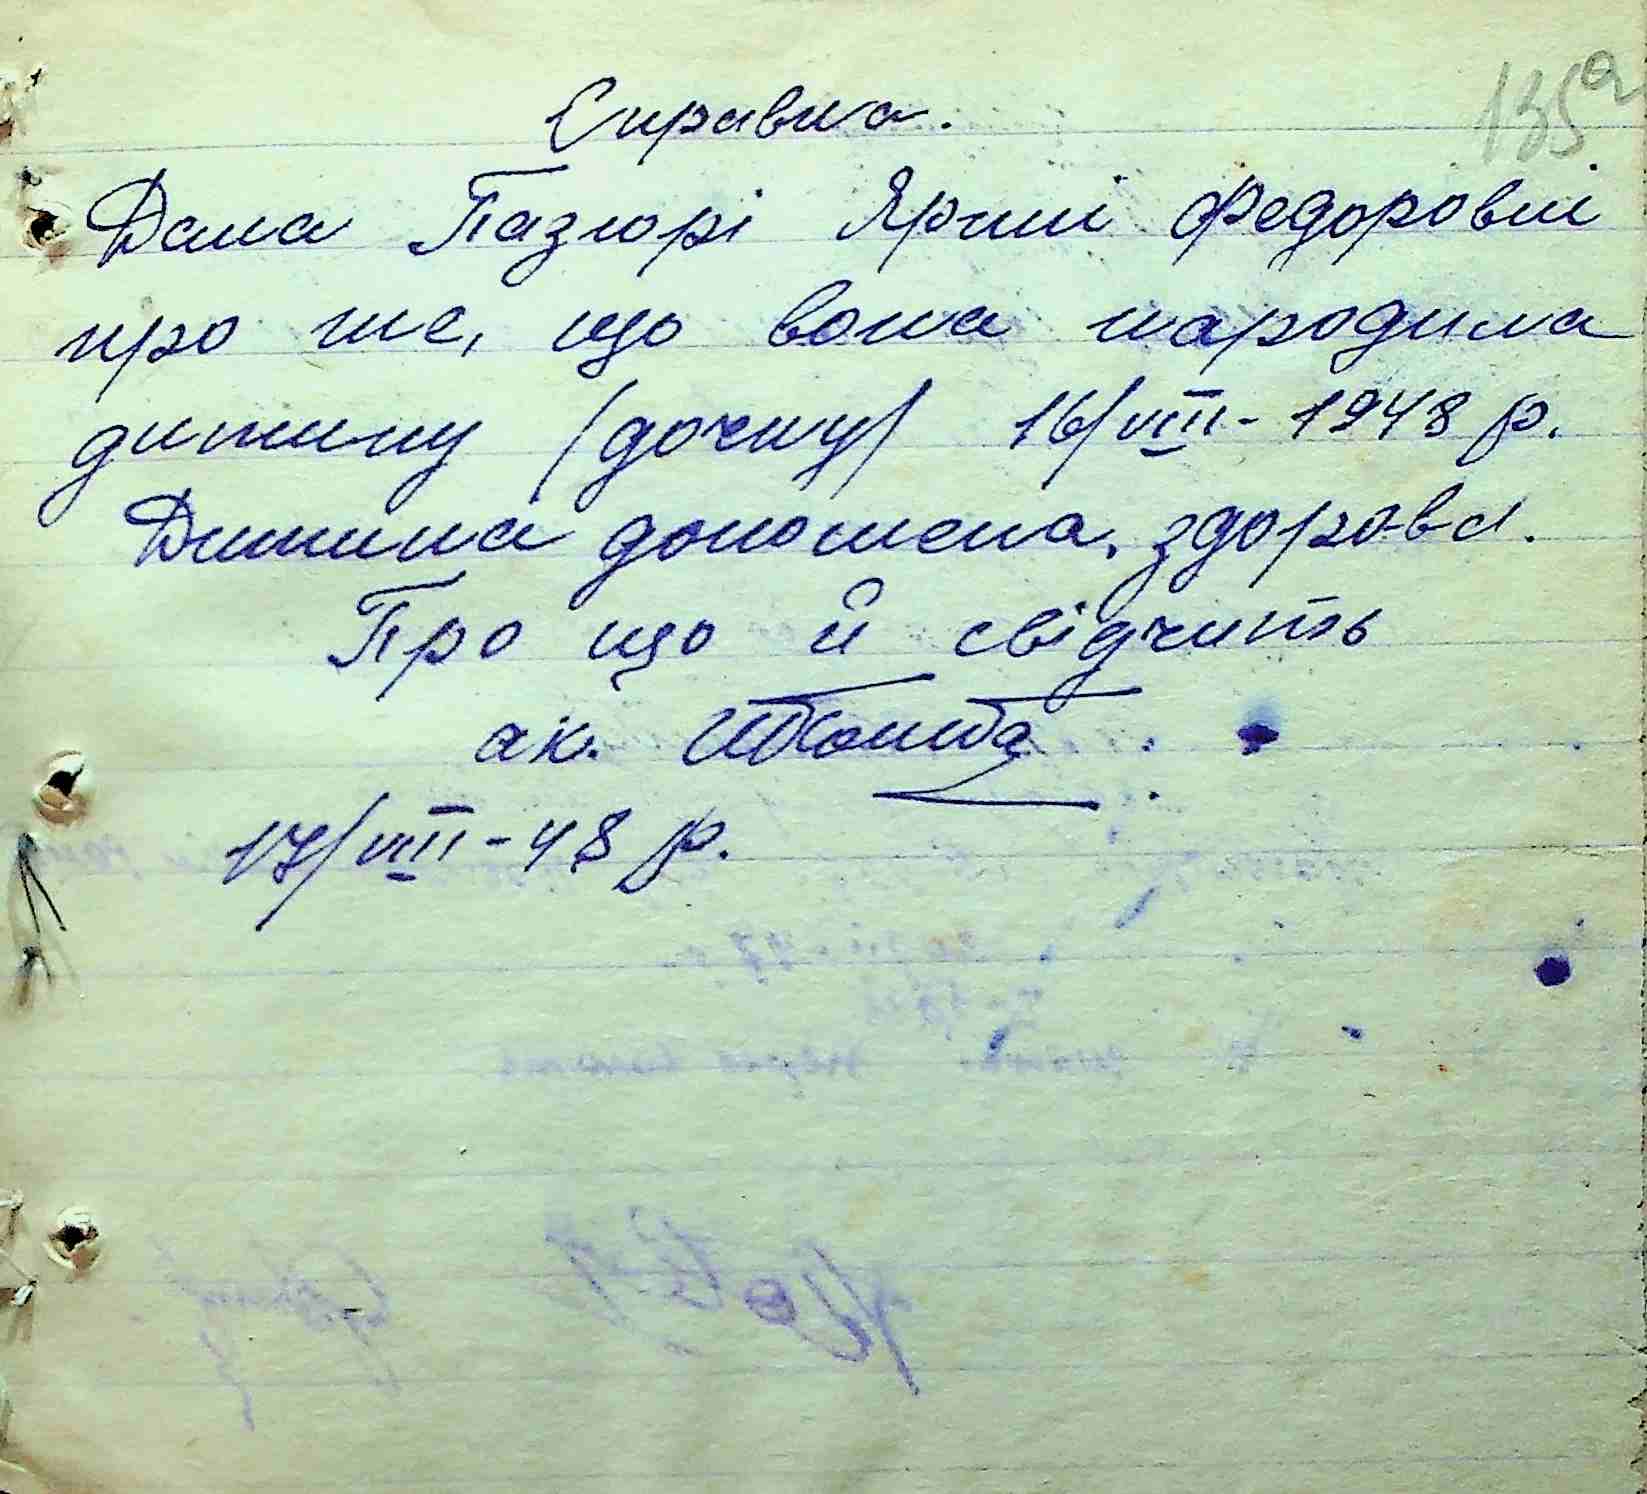 135а
Справка.
Дана Пазюрі Ярині Федоровні
про те, що вона народила
дитину /дочку/ 16/VIII - 1948 р.
Дитина доношена, здорова.
Про що й свідчить
ак.
17/VIII - 48 р.